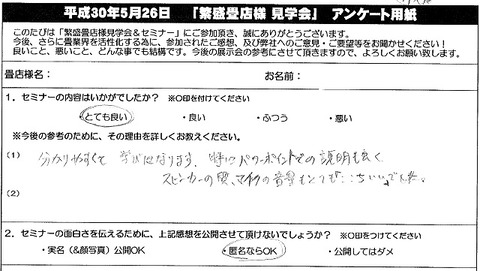 平成30年5月26日 「繁盛畳店様 見学会」 アンケート用紙
このたびは「繁盛畳店様見学会&セミナー」にご参加頂き、誠にありがとうございます。
今後、さらに畳業界を活性化する為に、参加されたご感想、及び弊社へのご意見・ご要望等をお聞かせください!
良いこと、悪いこと、どんな事でも結構です。今後の展示会の参考にさせて頂きますので、よろしくお願い致します。
畳店様名: お名前:
1.セミナーの内容はいかがでしたか? ※○印を付けてください
・とても良い ・良い ・ふつう ・悪い
※今後の参考のために、その理由を詳しくお教えください。
(1) 分かりやすくて 学びになります、特にパワーポイントでの説明も良く
スピーカーの質、マイクの音量もとても
(2)
2.セミナーの面白さを伝えるために、上記感想を公開させて頂けないでしょうか? ※○印をつけてください
・実名(&顔写真)公開OK ・匿名ならOK ・公開してはダメ